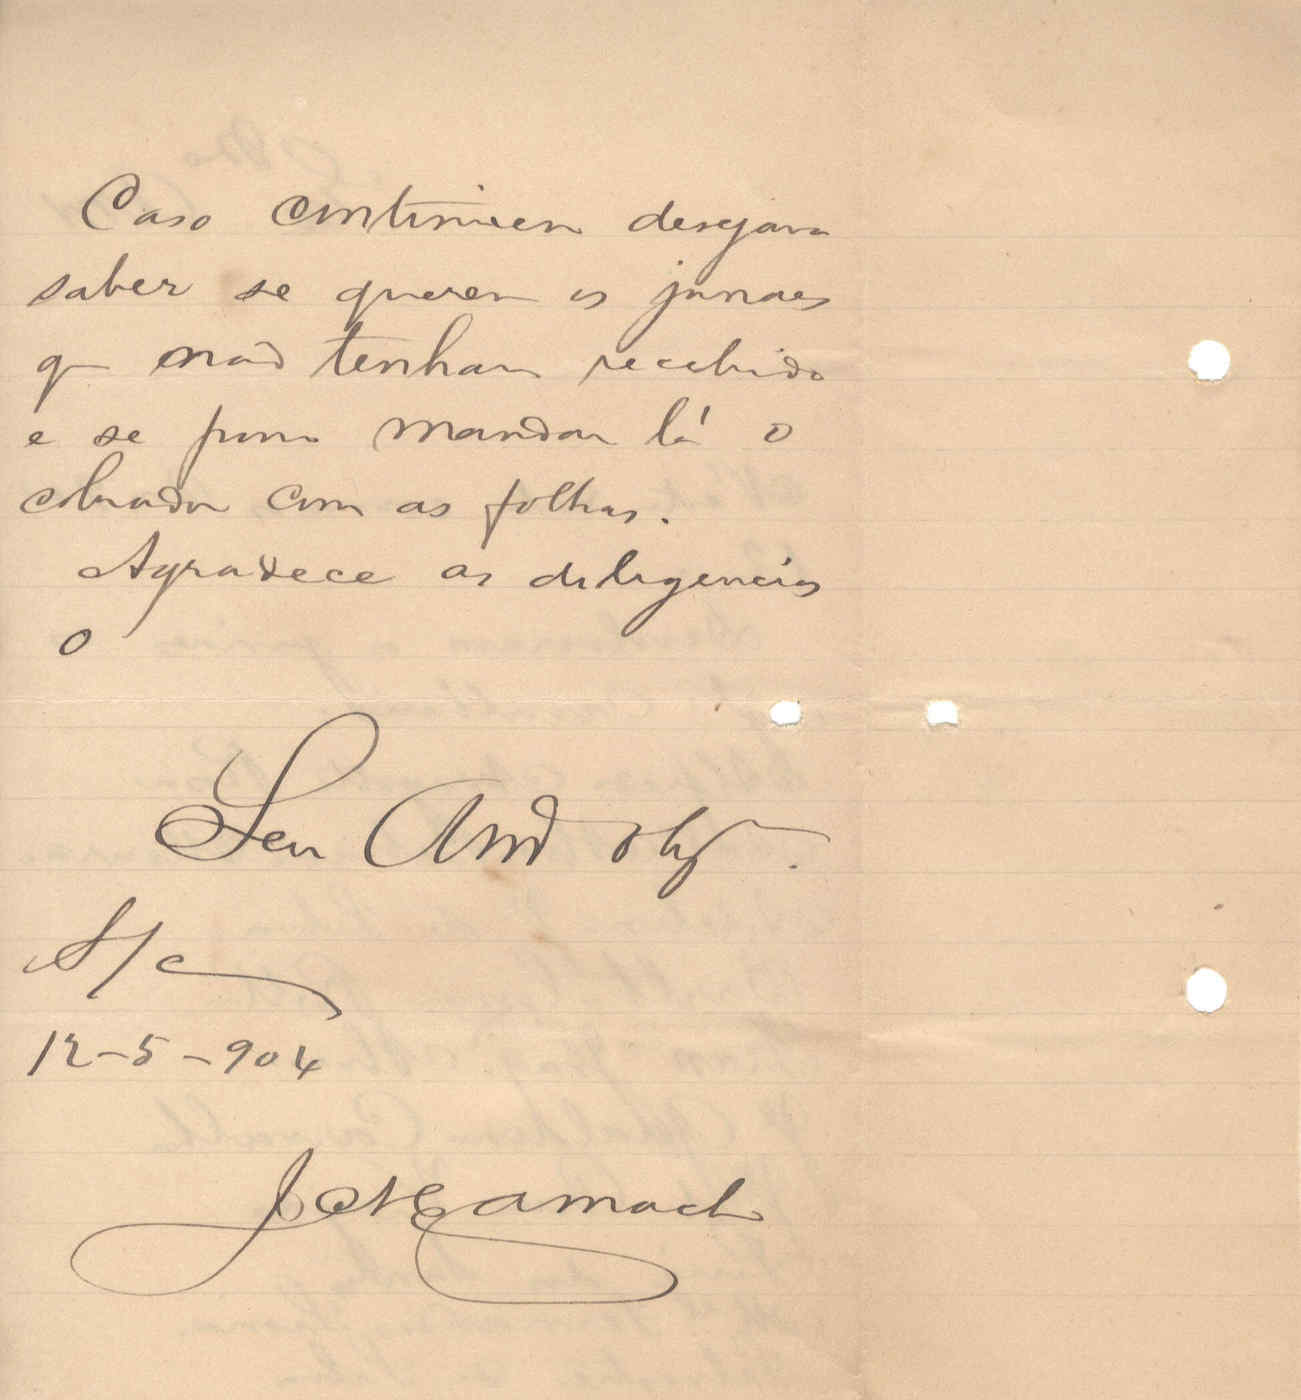 Caso continuem desejava
saber se querem os jornaes
q não tenham recebido
e se posso mandar lá o
cobrador com as folhas.
Agradece as diligencias
o
Seu Amo obgo.
S/c
12-5-904